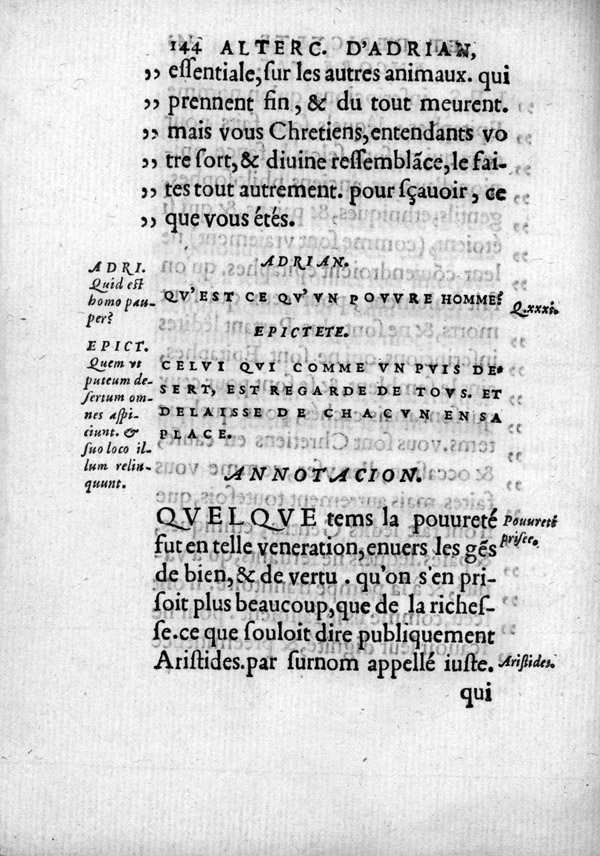 144 ALTERC. D'ADRIAN,
,, eſſentiale, ſur les autres animaux. qui
,, prennent fin, & du tout meurent.
,, mais vous Chretiens, entendants vo
,, tre ſort, & diuine reſſemblãce, le fai-
,, tes tout autrement. pour ſçauoir, ce
,, que vous étés.
ADRIAN.
ADRI.
Quid est
homo pau-
per?
QV'EST CE QV'VN POVVRE HOMME?
Q.xxxi.
EPICTETE.
EPICT.
Quem vt
puteum de-
ſertum om-
nes aſpi-
ciunt. &
ſuo loco il-
lum relin-
quunt.
CELVI QVI COMME VN PVIS DE-
SERT, EST REGARDE DE TOVS. ET
DELAISSE DE CHACVN EN SA
PLACE.
ANNOTACION.
QVELQVE tems la pouureté
fut en telle veneration, enuers les gẽs
de bien, & de vertu. qu'on s'en pri-
ſoit plus beaucoup, que de la richeſ-
ſe. ce que ſouloit dire publiquement
Ariſtides. par ſurnom appellé iuſte.
Pouureté
priſee.
Ariſtides.
qui